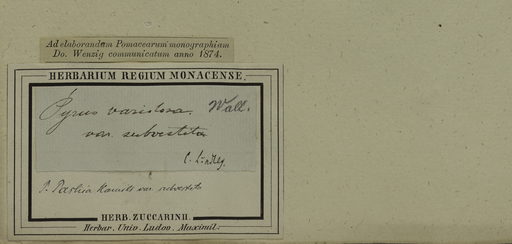 Ad elaborandam Pomacearum monographiam
Do. Wenzig communicatum anno 1874.
HERBARIUM REGIUM MONACENSE.
Pyrus variolosa Wall.
var. subvestita
C. Lindley
P. Pashia Hamilt. var subvestita
HERB. ZUCCARINII
Herbar. Univ. Ludov. Maximil.